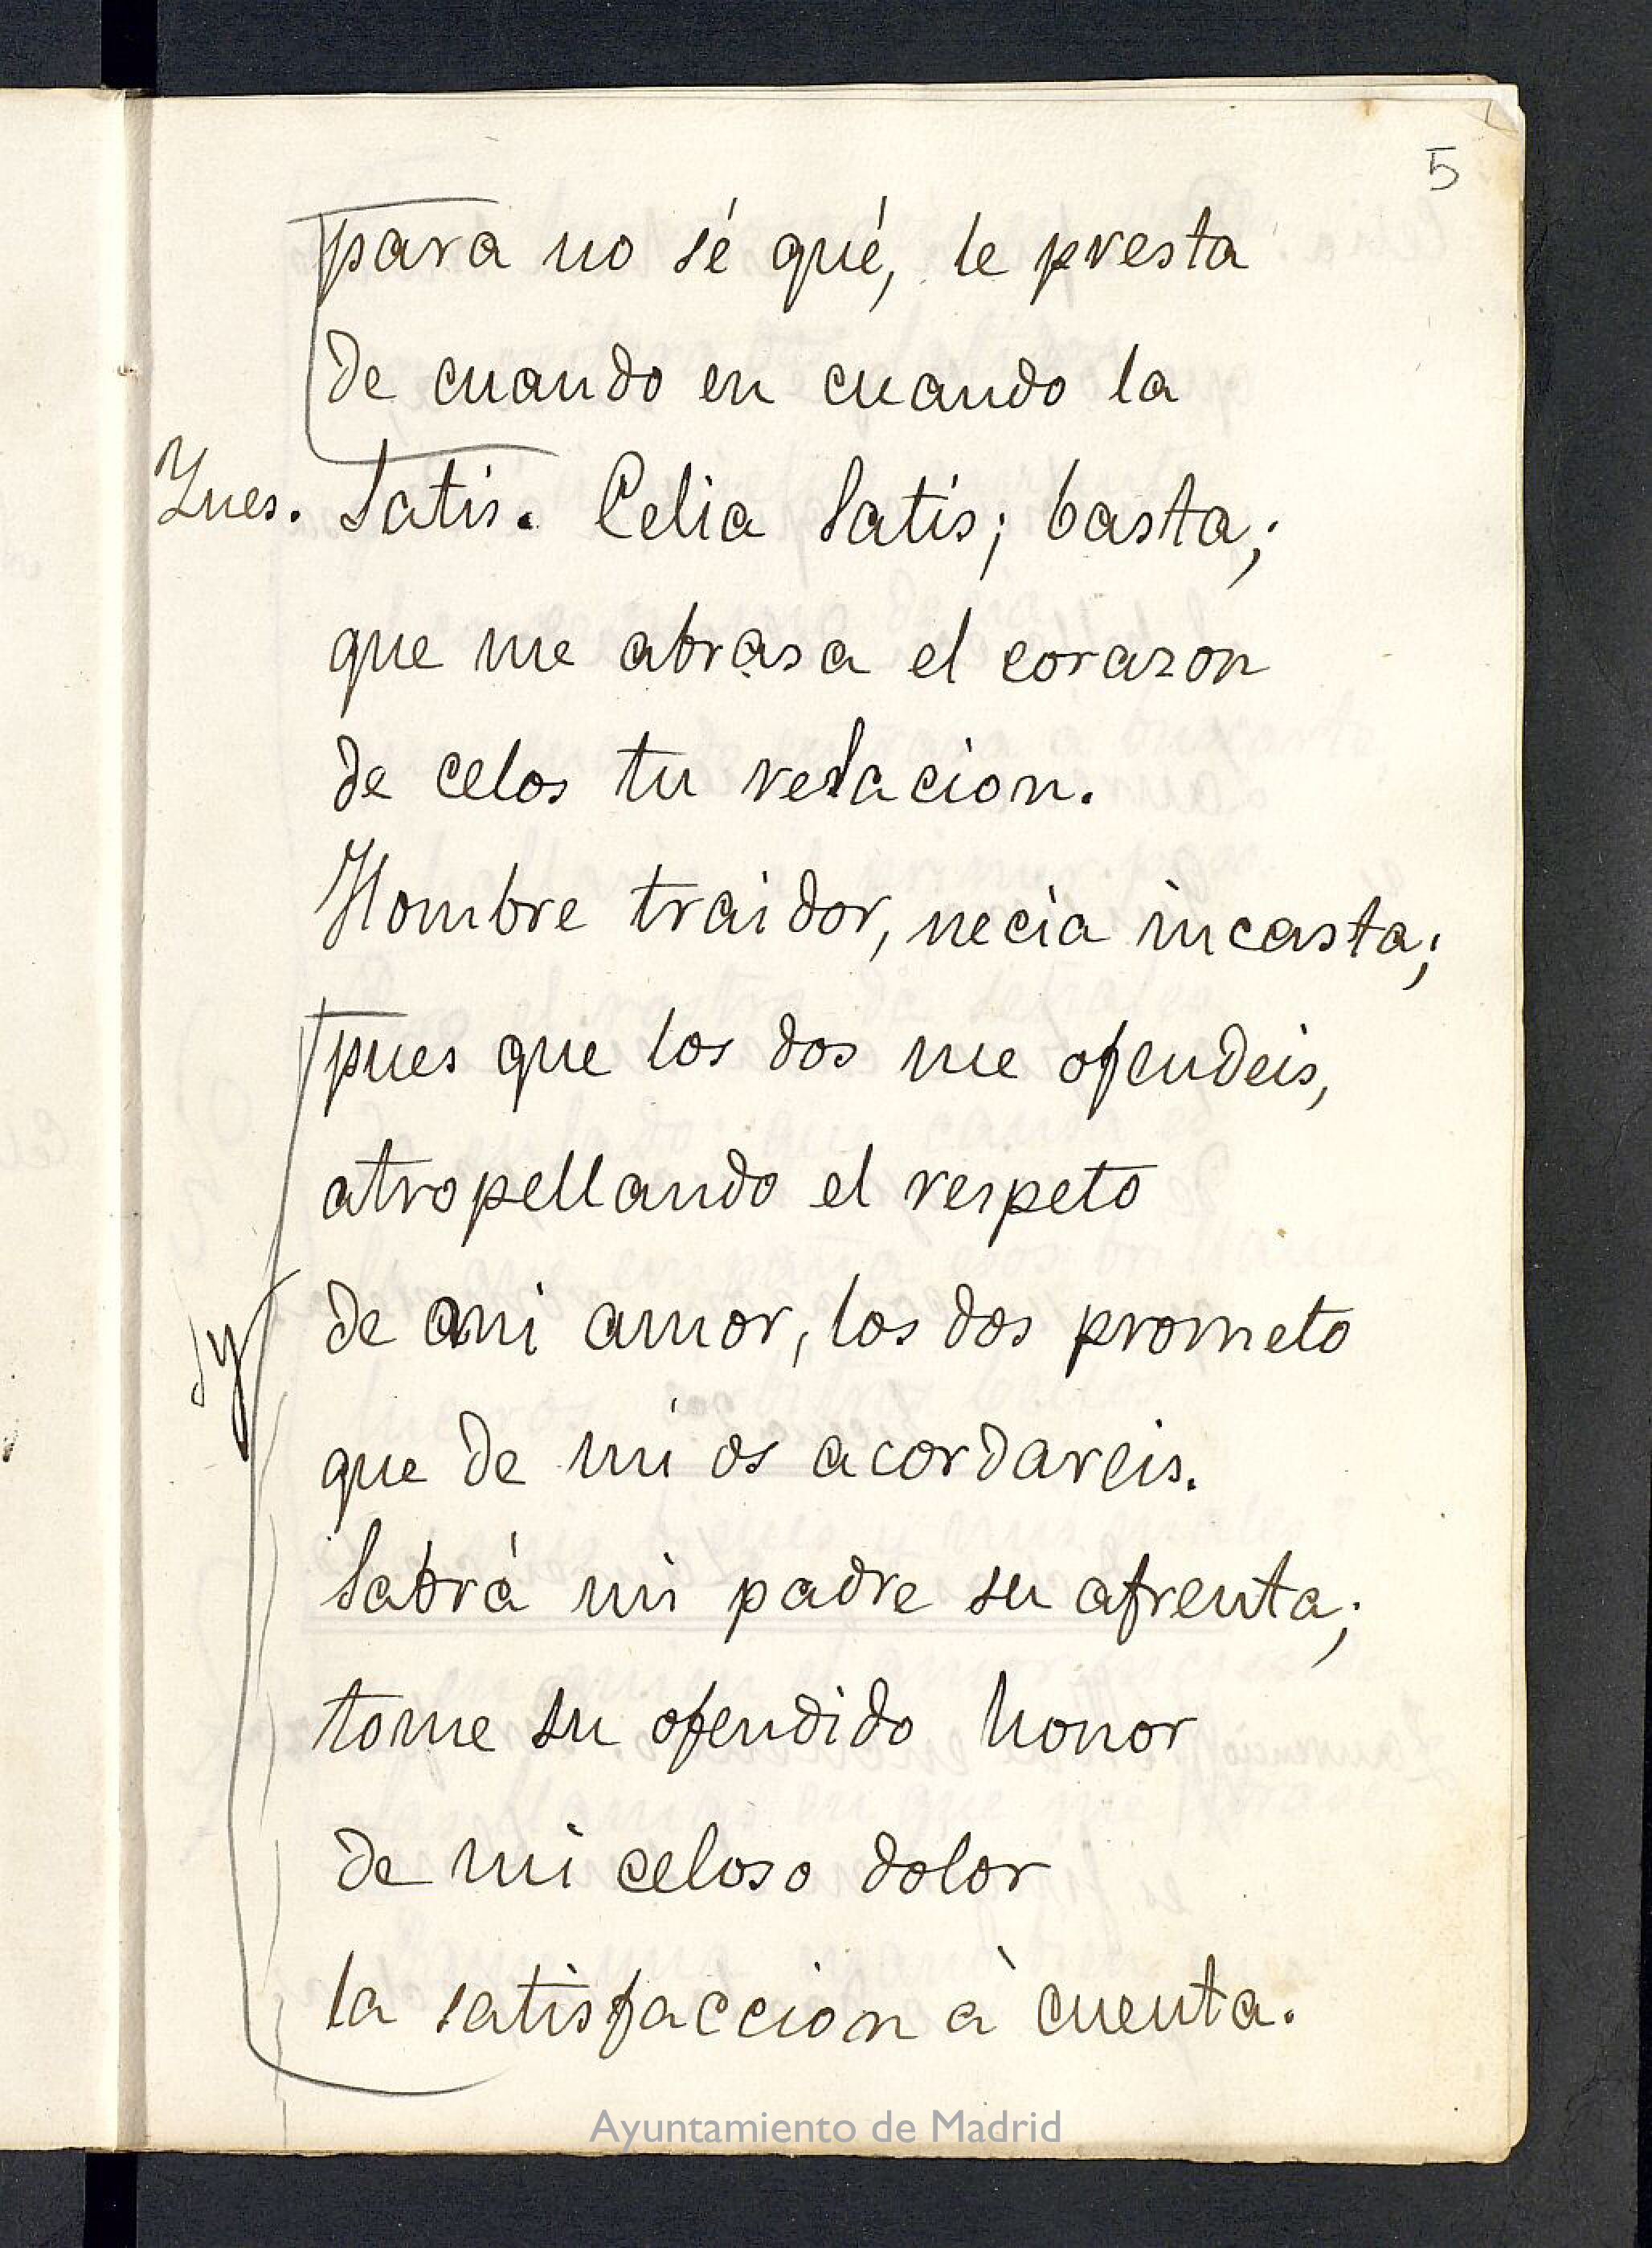 5
para no sé qué, le presta
de cuando en cuando la
Ynes. Satis. Celia Satis; basta;
que me abrasa el corazon
de celos tu relacion.
Hombre traidor, necia incasta;
pues que los dos me ofendeis,
atropellando el respeto
de mi amor, los dos prometo
que de mi os acordareis.
Sabrá mi padre su afrenta;
tome su ofendido honor
de mi celoso dolor
la satisfaccion à cuenta.
Ayuntamiento de Madrid